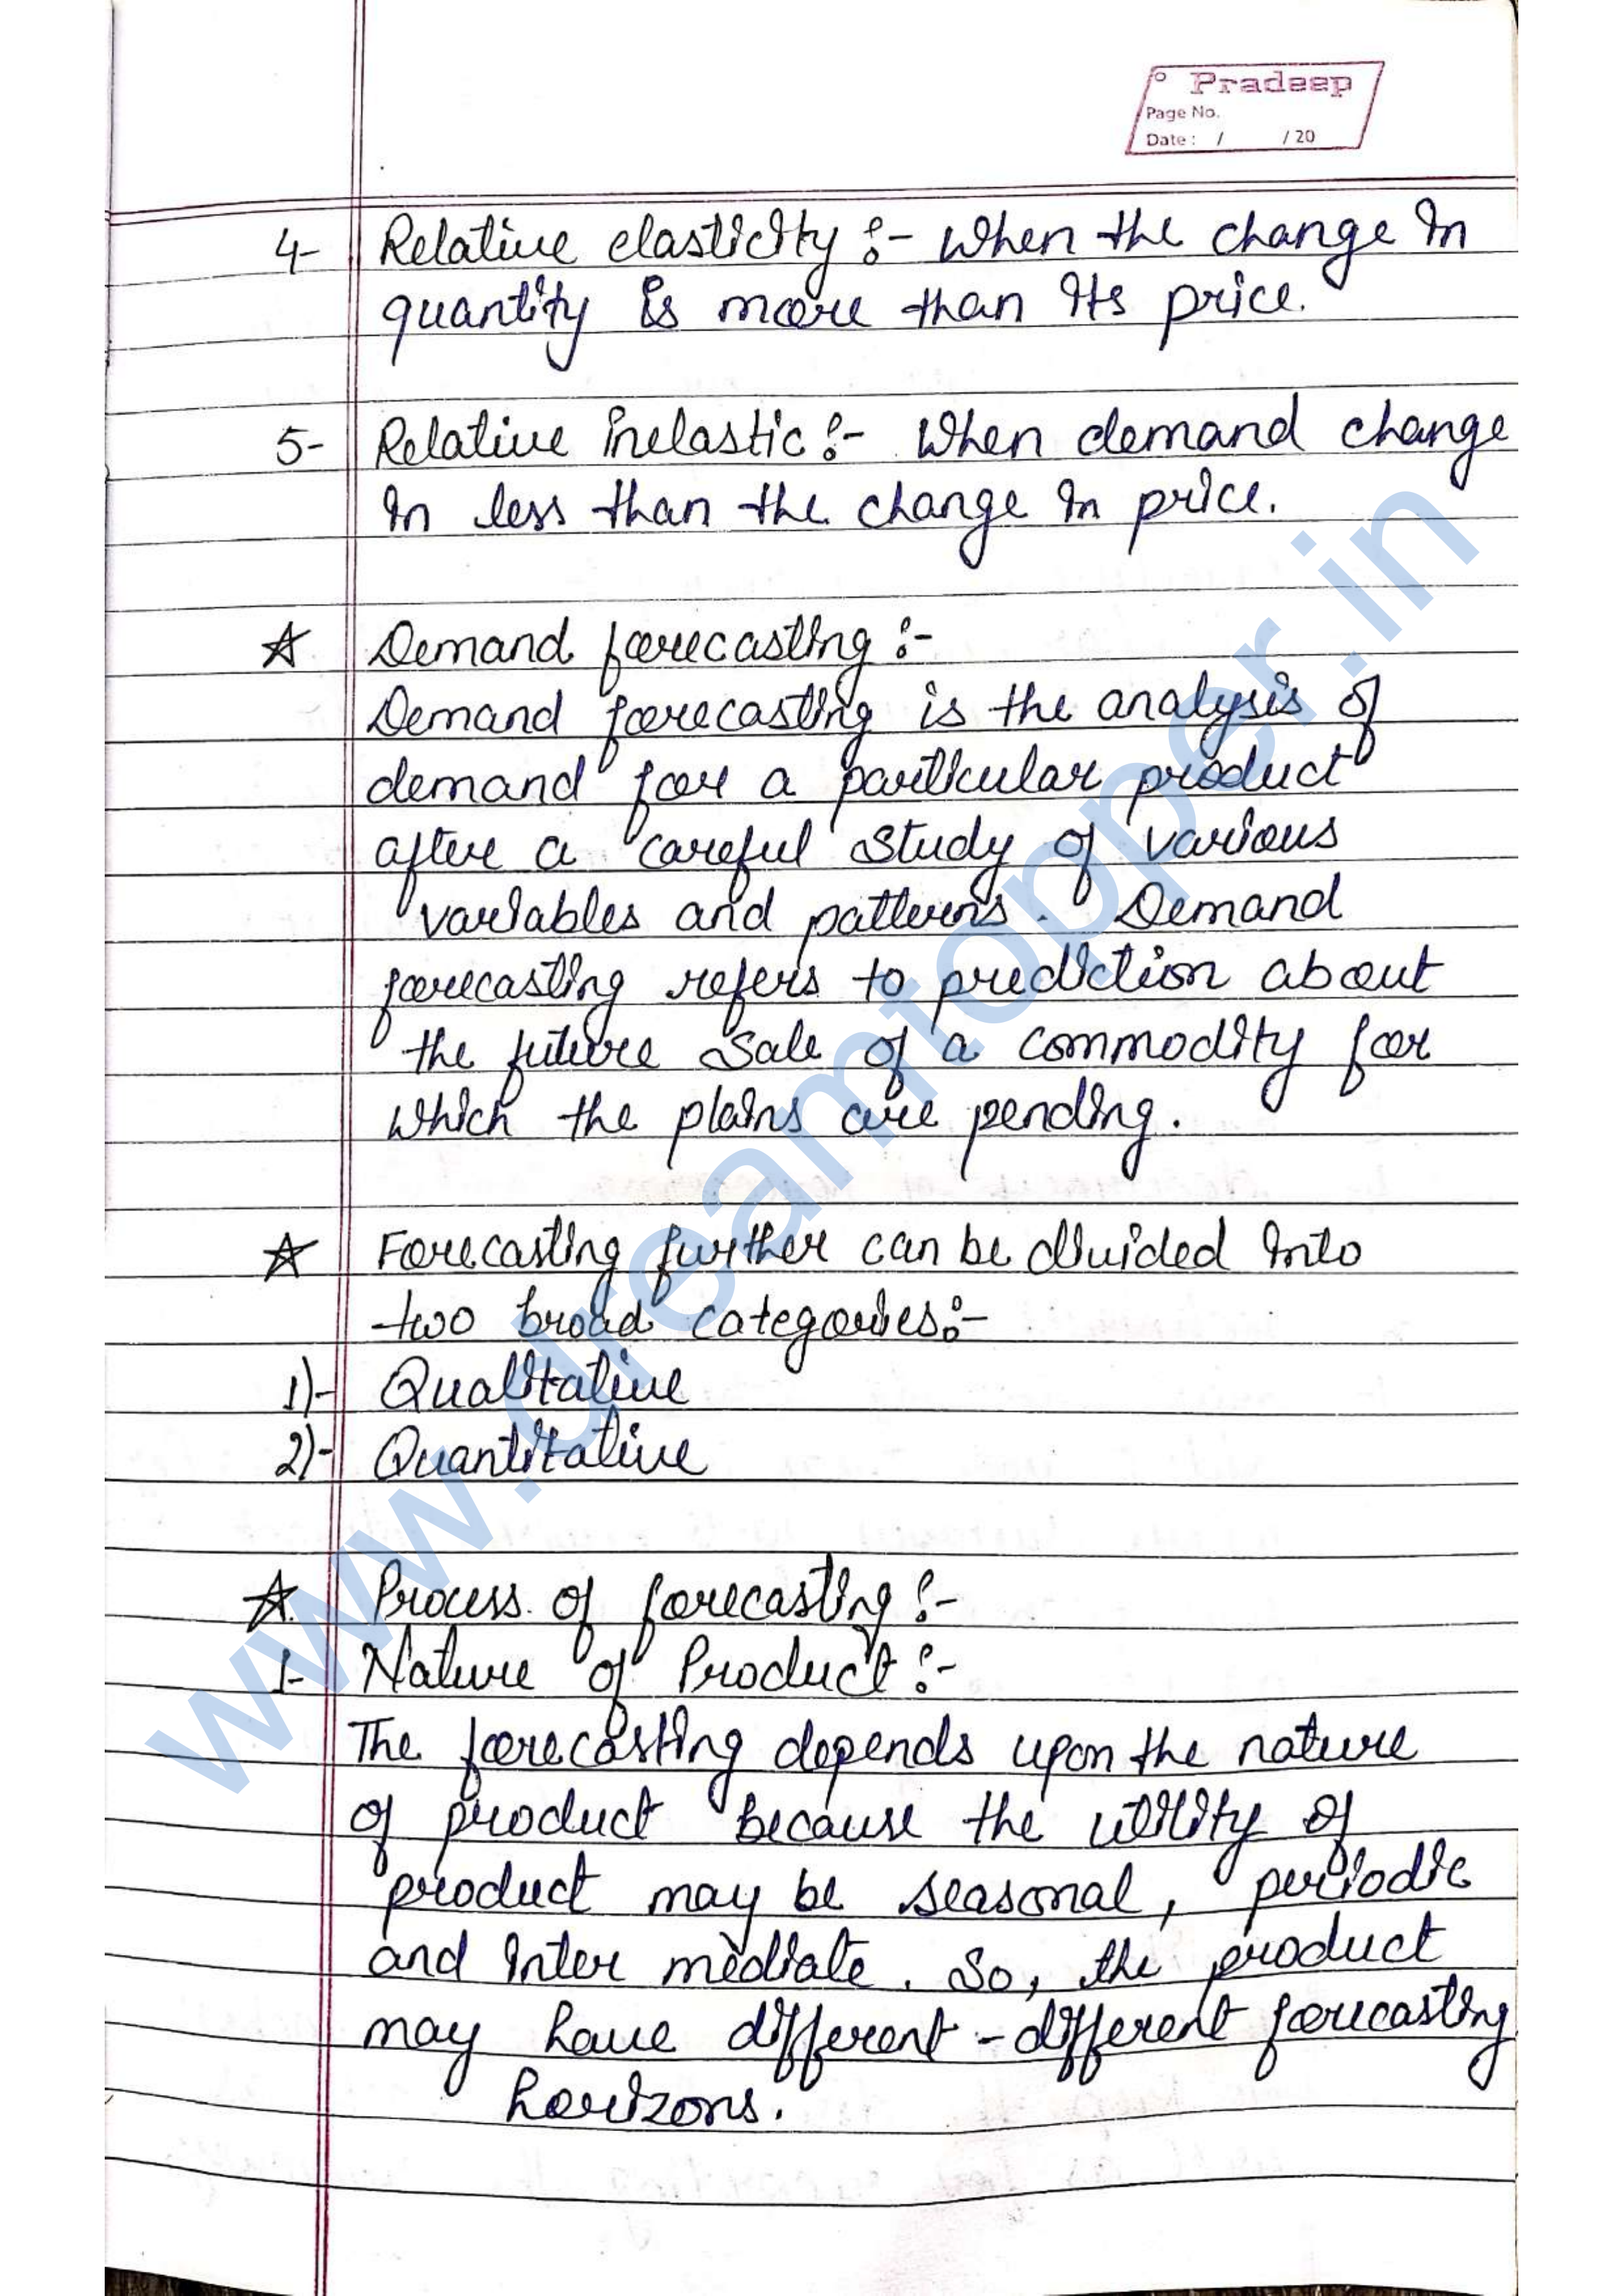 Pradeep
Page No.
Date : / / 20
4- Relative elasticity :- When the change in
quantity is more than its price.
5- Relative inelastic :- When demand change
in less than the change in price.
☆ Demand forecasting :-
Demand forecasting is the analysis of
demand for a particular product
after a careful study of various
variables and patterns. Demand
forecasting refers to prediction about
the future sale of a commodity for
which the plains are pending.
☆ Forecasting further can be divided into
two broad categories:-
1)- Qualitative
2)- Quantitative
☆ Process of forecasting :-
1- Nature of Product :-
The forecasting depends upon the nature
of product because the utility of
product may be seasonal, periodic
and inter mediate. So, the product
may have different - different forecasting
horizons.
www.dreamtopper.in